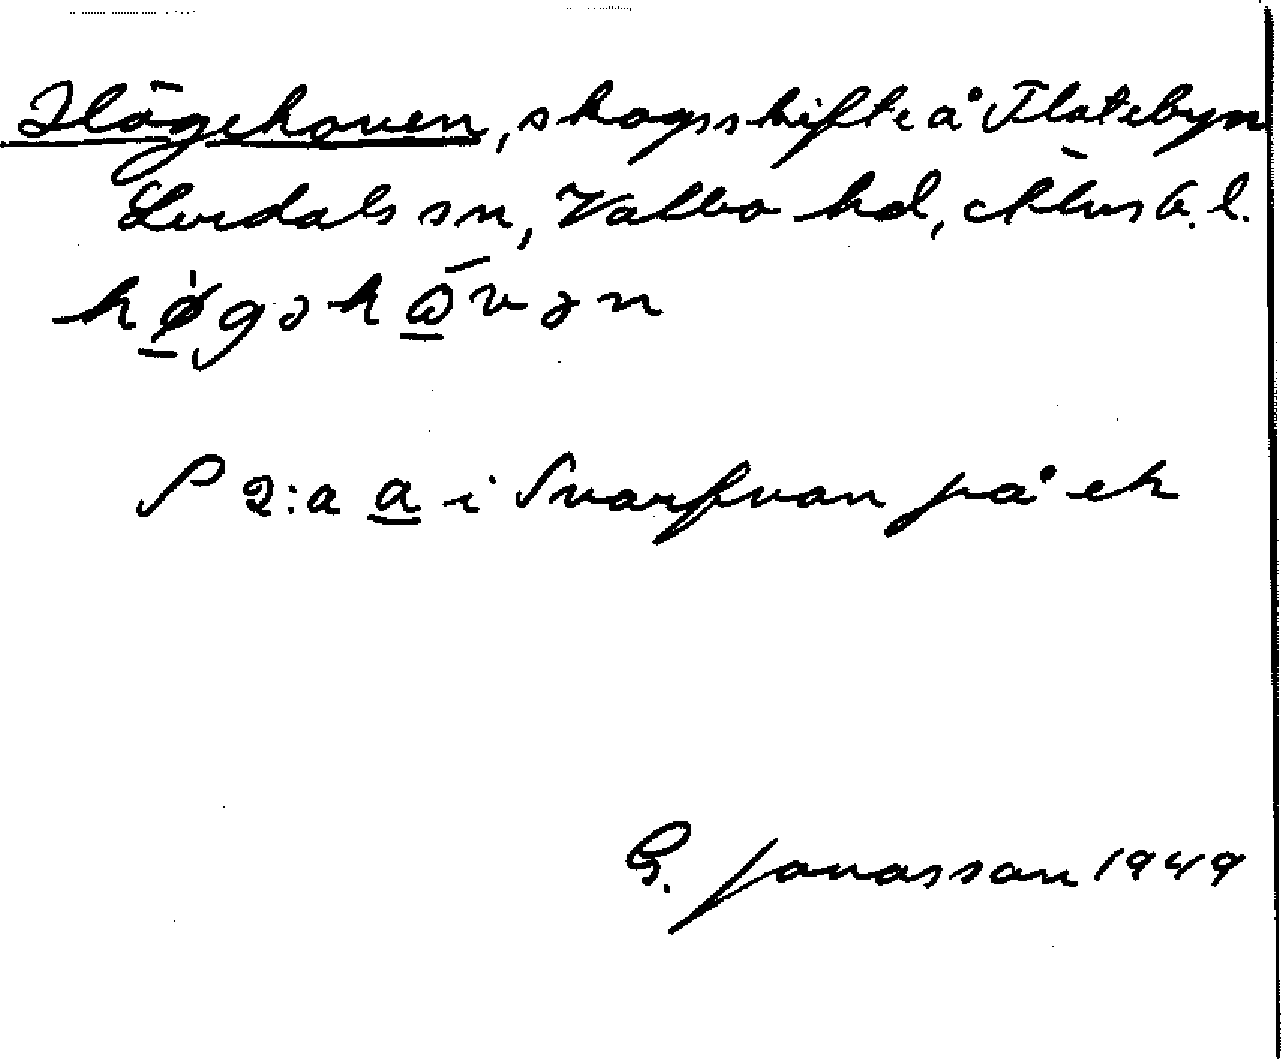 Högekoven, skogsskifte å Flatebyn
Lerdals sn, Valbo hd, Älvsb. l.
høgəkåvən
P 2:a a i Svarfvan på ek
G. Jonasson 1949